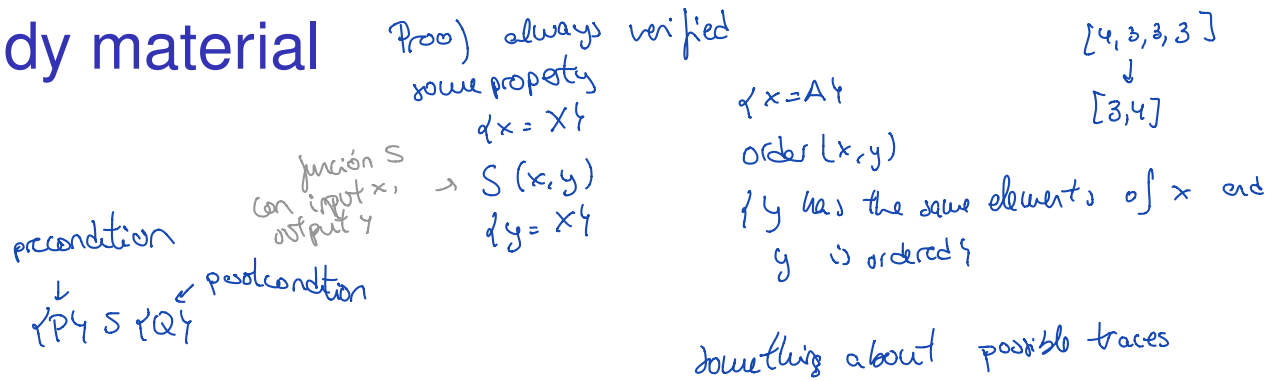 dy material
Proof always verified
some property
{x = X}
S (x, y)
{y = X}
función S
con input x,
output y
precondition
↓
{P} S {Q}
postcondition
{x = A}
order (x, y)
{y has the same elements of x and
y is ordered}
[4, 3, 3, 3]
↓
[3, 4]
something about possible traces